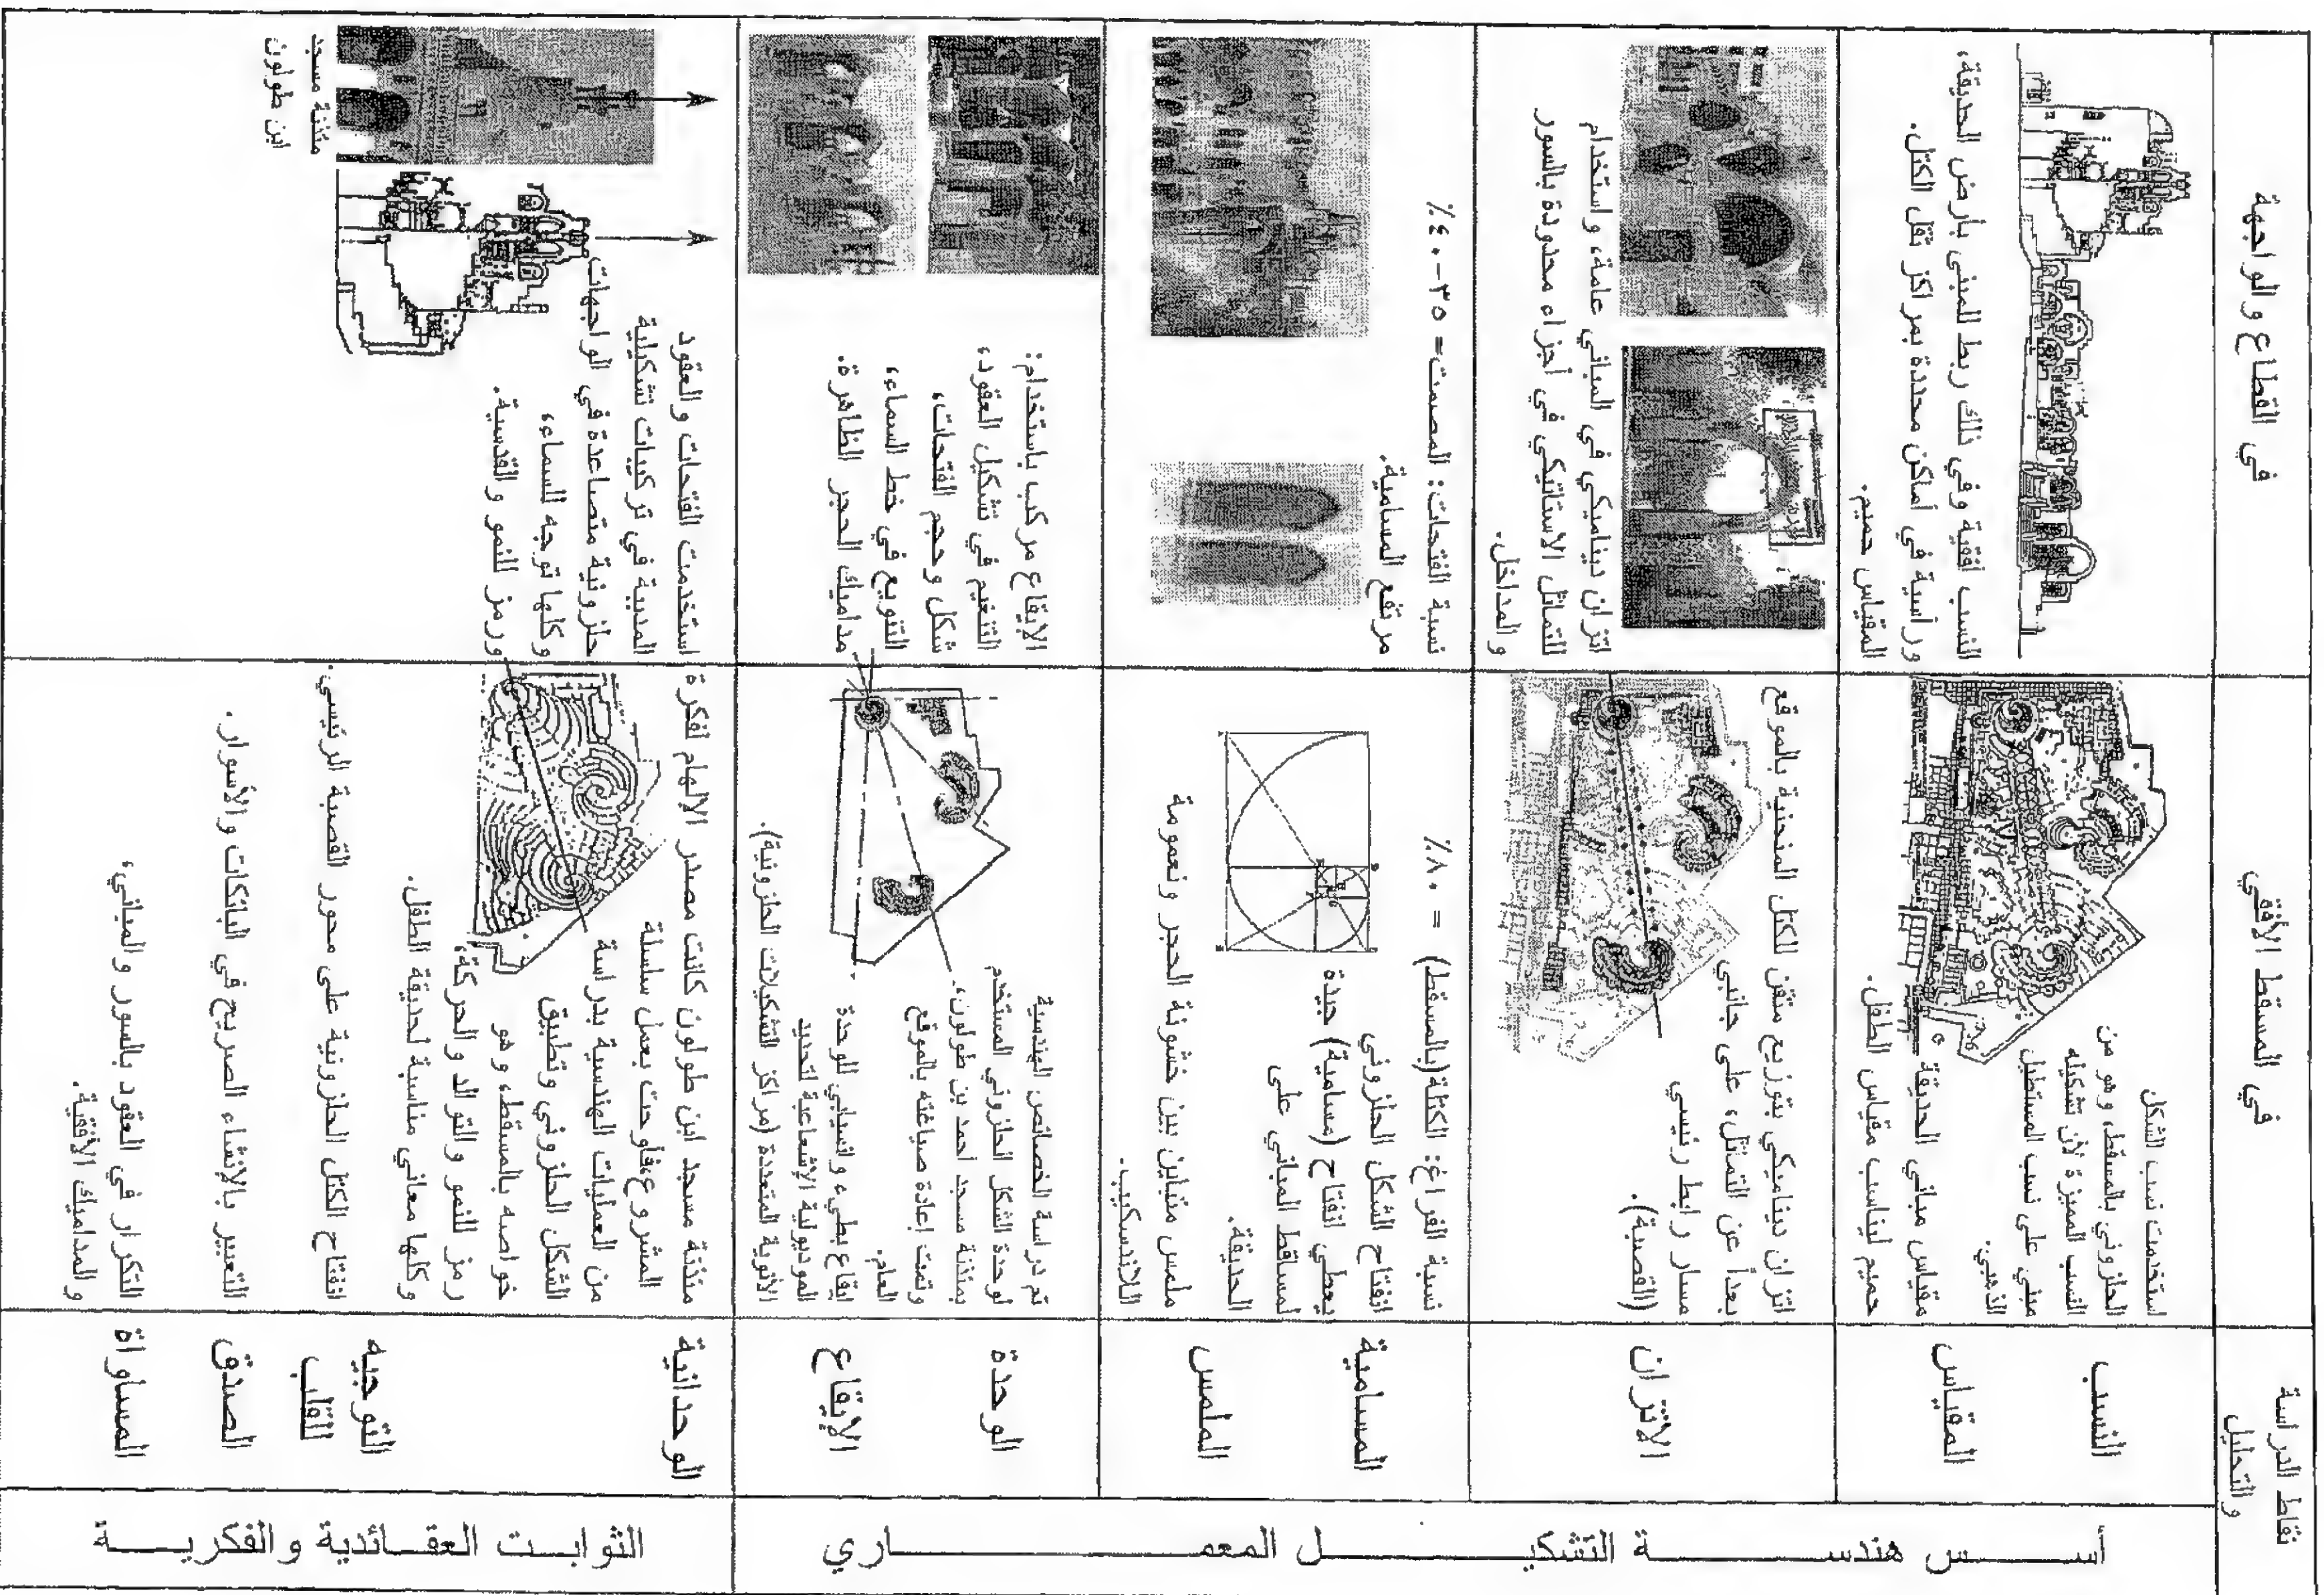 نقاط الدراسة
والتحليل
في المسقط الأفقي
في القطاع والواجهة
أسس هندسة التشكيل المعماري
النسب
استخدمت نسب الشكل
الحلزوني بالمسقط، وهو من
النسب المميزة لأن تشكيله
مبني على نسب المستطيل
الذهبي.
النسب أفقية وفي ذلك ربط للمبنى بأرض الحديقة،
ورأسية في أماكن محددة بمراكز ثقل الكتل.
المقياس
مقياس مباني الحديقة
حميم ليناسب مقياس الطفل.
المقياس حميم.
الاتزان
اتزان ديناميكي بتوزيع متقن للكتل المنحنية بالموقع
بعداً عن التماثل، على جانبي
مسار رابط رئيسي
(القصبة).
اتزان ديناميكي في المباني عامة، واستخدام
للتماثل الاستاتيكي في أجزاء محدودة بالسور
والمداخل.
المسامية
نسبة الفراغ: الكتلة(بالمسقط) = ٨٠٪
انفتاح الشكل الحلزوني
يعطي انفتاح (مسامية) جيدة
لمساقط المباني على
الحديقة.
نسبة الفتحات: المصمت= ٣٥-٤٠٪
مرتفع المسامية.
الملمس
ملمس متباين بين خشونة الحجر ونعومة
اللاندسكيب.
الوحدة
تم دراسة الخصائص الهندسية
لوحدة الشكل الحلزوني المستخدم
بمئذنة مسجد أحمد بن طولون،
وتمت إعادة صياغته بالموقع
العام.
الإيقاع
إيقاع بطيء وانسيابي للوحدة
الموديولية الإشعاعية لتحديد
الأنوية المتعددة (مراكز التشكيلات الحلزونية).
الإيقاع مركب باستخدام:
التنغيم في تشكيل العقود،
شكل وحجم الفتحات،
التنويع في خط السماء،
مداميك الحجر الظاهرة.
الثوابت العقائدية والفكرية
الوحدانية
مئذنة مسجد ابن طولون كانت مصدر الإلهام لفكرة
المشروع،فأوحت بعمل سلسلة
من العمليات الهندسية بدراسة
الشكل الحلزوني وتطبيق
خواصه بالمسقط، وهو
رمز للنمو والتوالد والحركة،
وكلها معاني مناسبة لحديقة الطفل.
استخدمت الفتحات والعقود
المدببة في تركيبات تشكيلية
حلزونية متصاعدة في الواجهات
وكلها توجه للسماء،
ورمز للنمو والقدسية.
مئذنة مسجد
ابن طولون
التوجيه
للقلب
انفتاح الكتل الحلزونية على محور القصبة الرئيسي.
الصدق
التعبير بالإنشاء الصريح في البائكات والأسوار.
المساواة
التكرار في العقود بالسور والمباني،
والمداميك الأفقية.